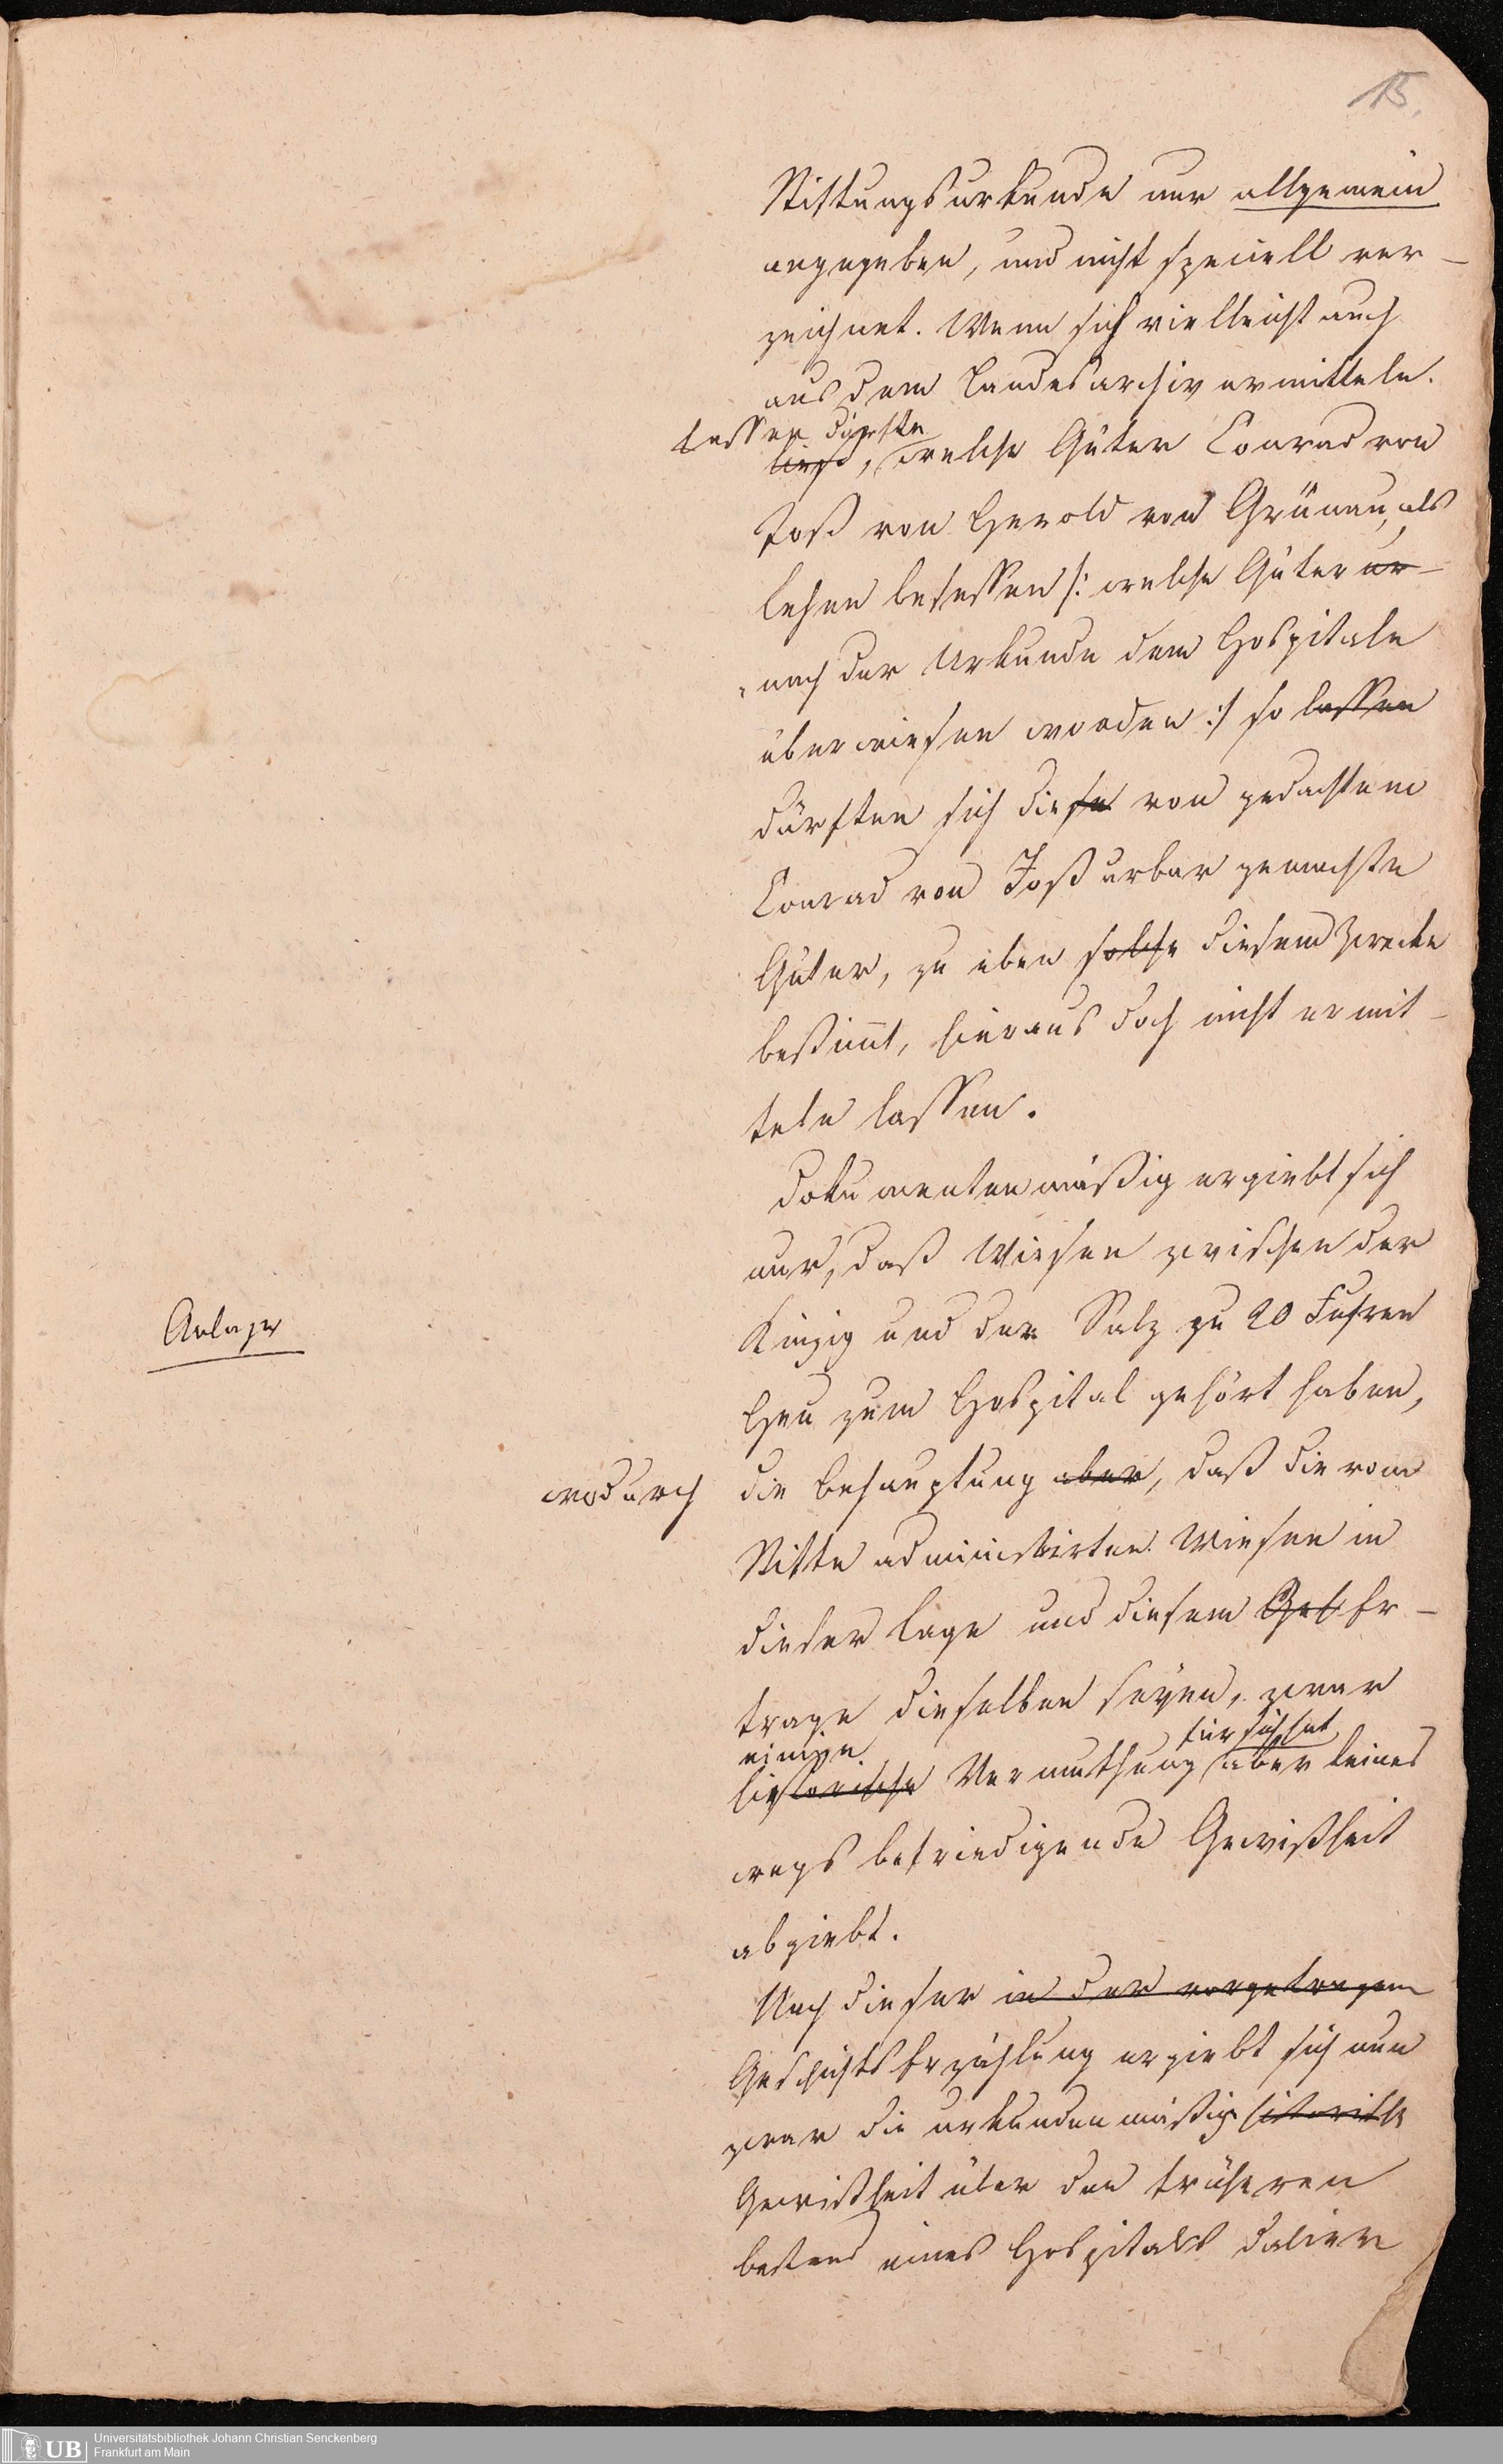 15.
Stiftungsurkunde nur allgemein
angegeben, und nicht speciell ver-
zeichnet. Wenn sich vielleicht auch
aus dem Landesarchiv ermitteln
lassen dürfte
ließ, welche Güter Conrad von
Joß von Herold von Grünau, als
Lehen besessen /: welche Güter ur-
nach der Urkunde dem Hospitale
überwiesen worden :/ so lassen
dürften sich diese von gedachtem
Conrad von Joß urbar gemachte
Güter, zu eben solche diesem Zwecke
bestimt, hieraus doch nicht ermit-
teln lassen.
Dokumentenmäßig ergiebt sich
nur, daß Wiesen zwischen der
Anlage
Kinzig und der Salz zu 20 Fuhren
Heu zum Hospital gehört haben,
wodurch
die Behauptung aber, daß die vom
Stifte administrirten Wiesen in
dieser Lage und diesem Geh Er-
trage dieselben seyen, zwar
einige für sich hat
historische Vermuthung aber keines
wegs befriedigende Gewißheit
abgiebt.
Nach dieser in der vorgetragen
Geschichts Erzählung ergiebt sich nun
zwar die urkundenmäßige historische
Gewißheit über den früheren
Bestand eines Hospitals dahier
UB
Universitätsbibliothek Johann Christian Senckenberg
Frankfurt am Main